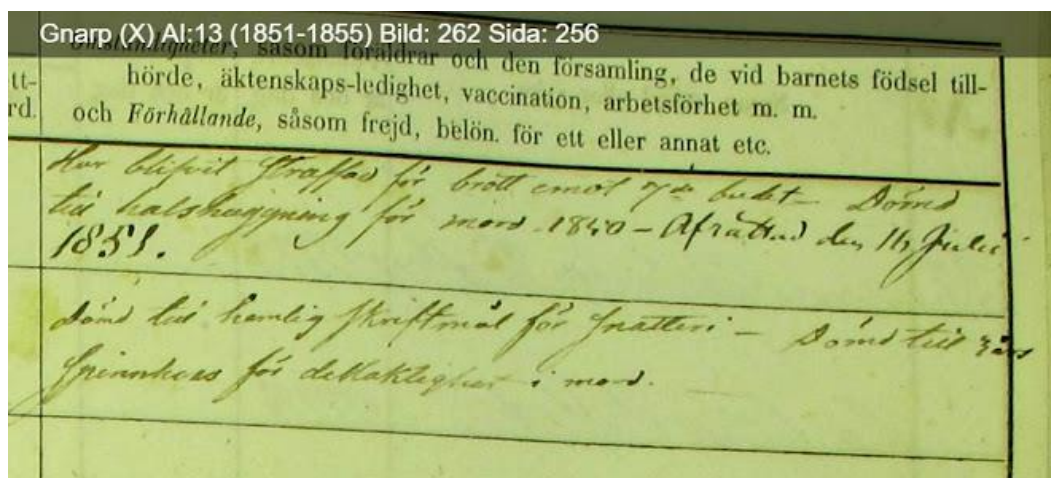 Gnarp (X) AI:13 (1851-1855) Bild: 262 Sida: 256
Omständigheter, såsom föräldrar och den församling, de vid barnets födsel till-
tt- hörde, äktenskaps-ledighet, vaccination, arbetsförhet m. m.
rd. och Förhållande, såsom frejd, belön. för ett eller annat etc.
Har blifvit straffad för brott emot 7de budet – Dömd
till halshuggning för mord 1850 – Afrättad den 16 Julii
1851.
Dömd till hemlig skriftmål för snatteri – Dömd till 3 års
Spinnhus för delaktighet i mord.